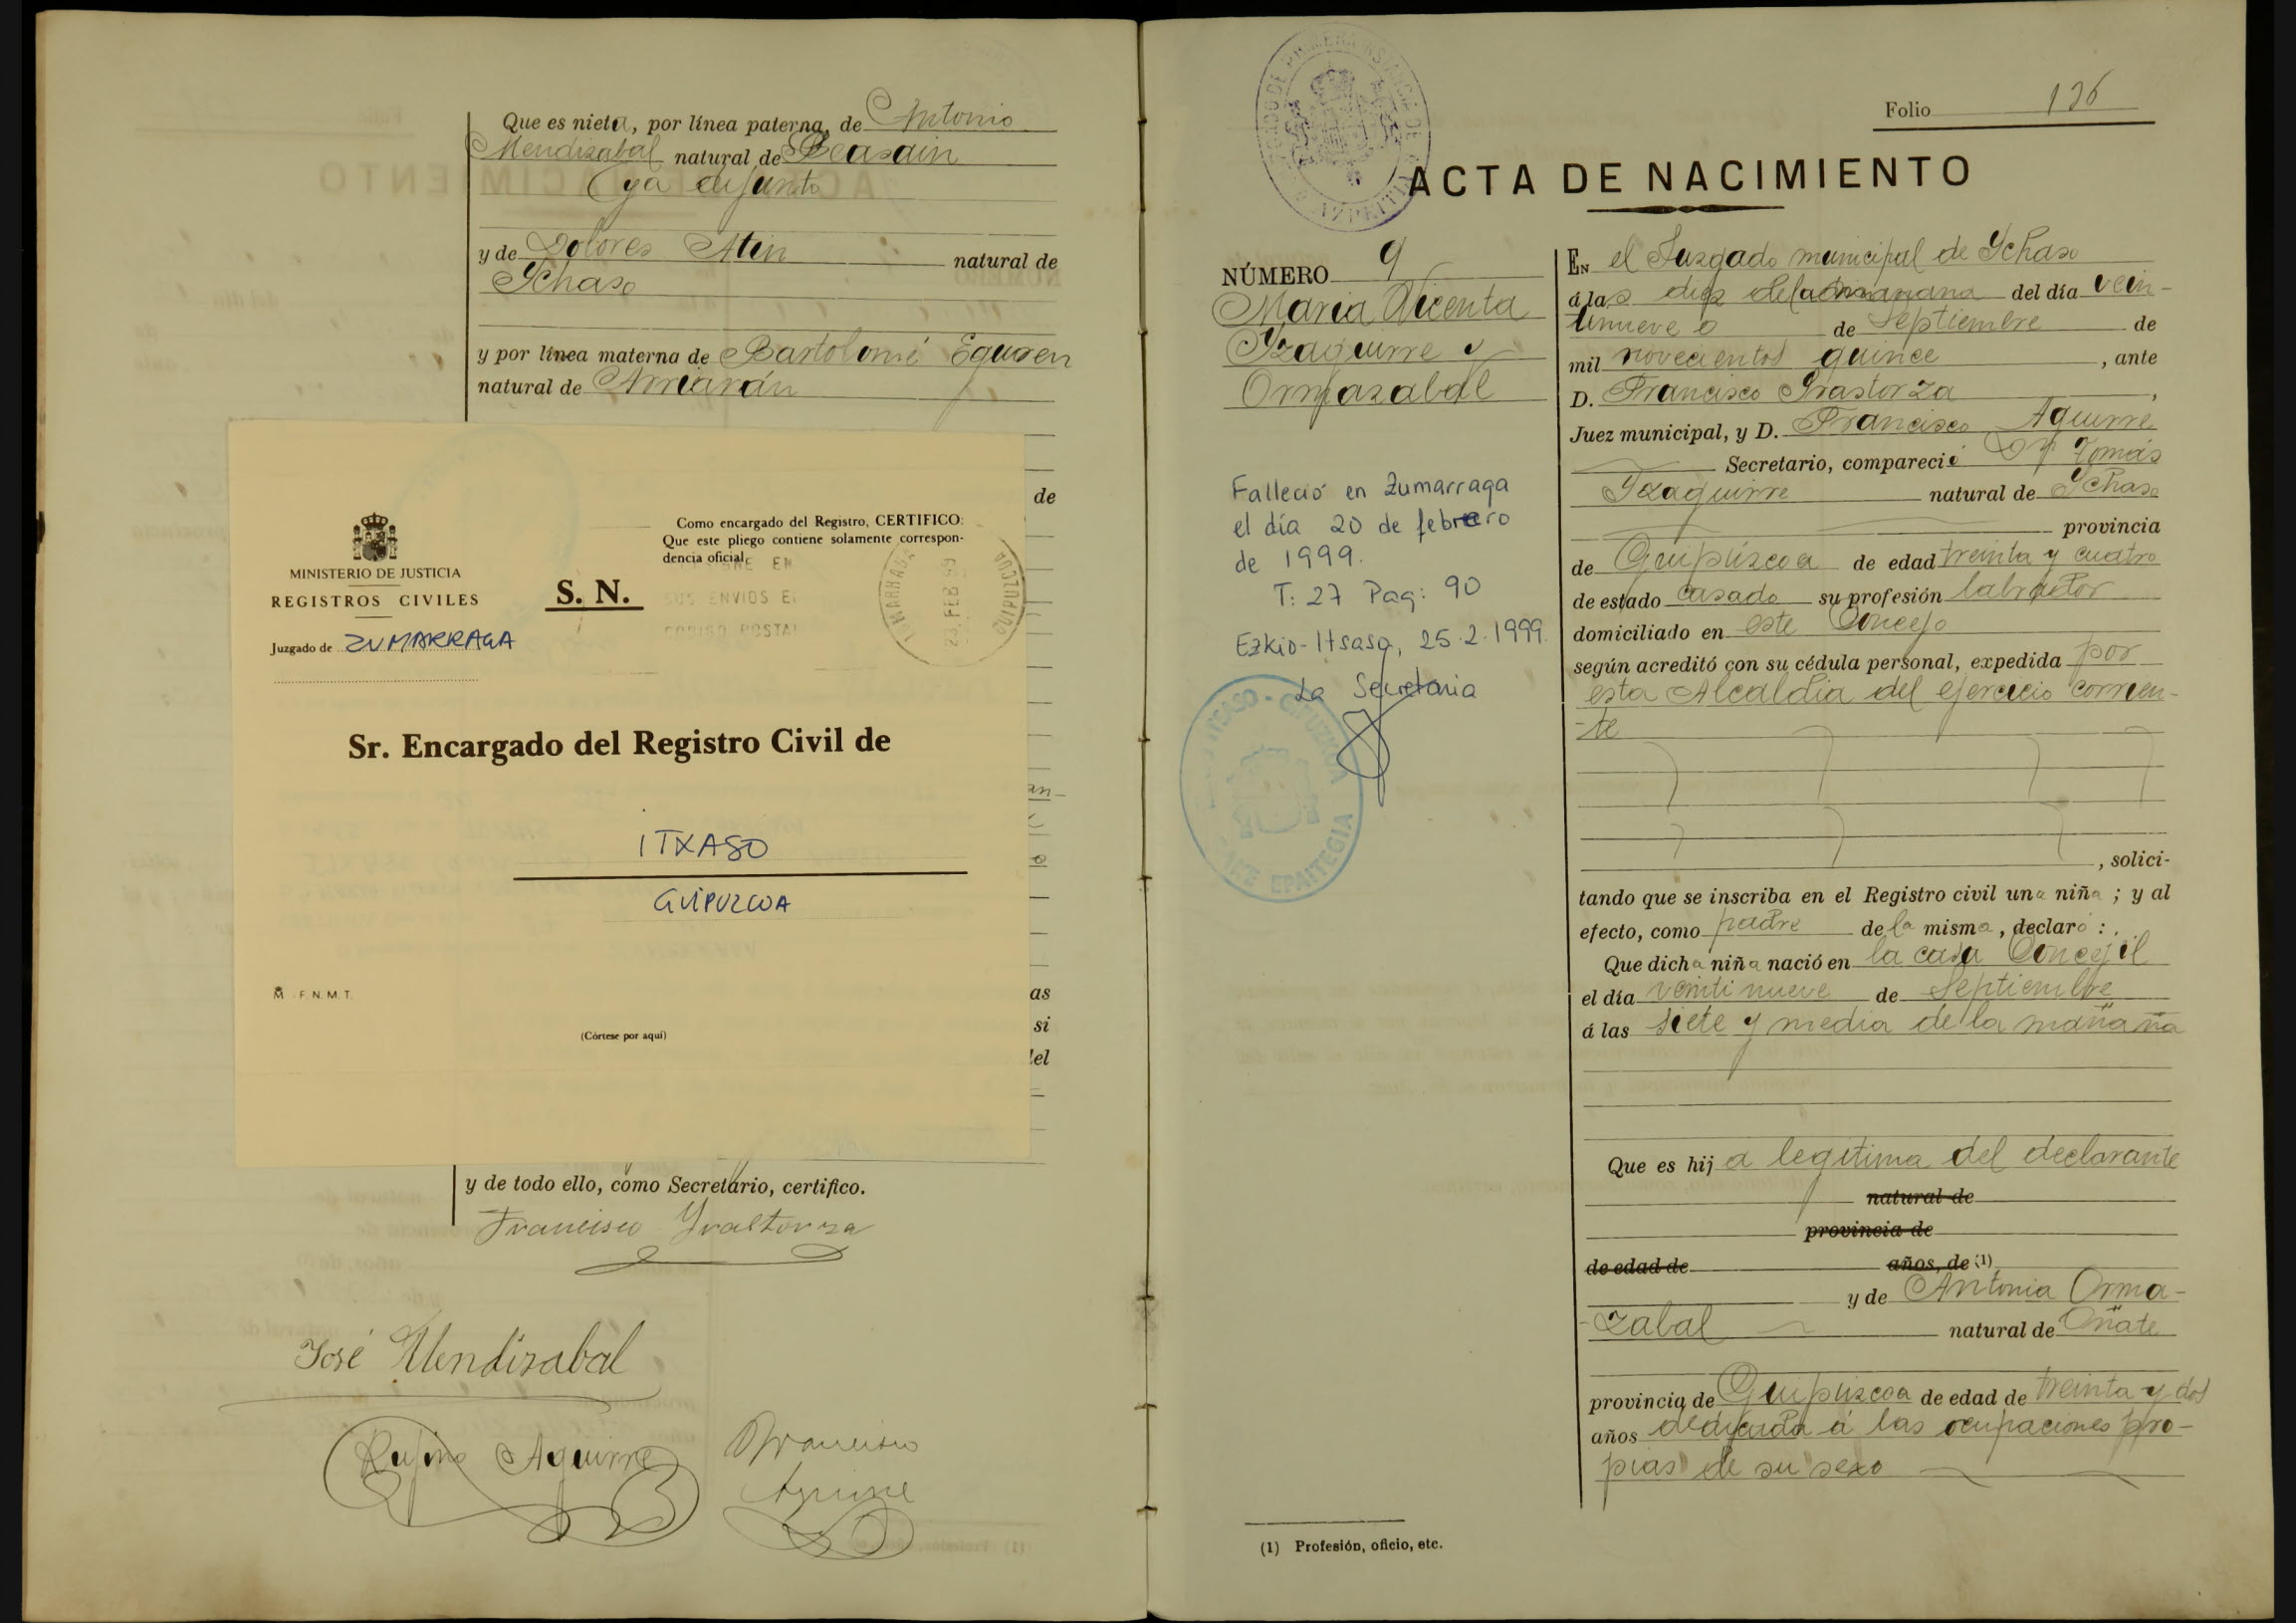 Que es nieta, por línea paterna, de Antonio
Mendizabal natural de Beasain
ya difunto
y de Dolores Atin natural de
Ychaso
y por línea materna de Bartolomé Eguren
natural de Arriarán
de
MINISTERIO DE JUSTICIA
REGISTROS CIVILES
Juzgado de ZUMARRAGA
S. N.
Como encargado del Registro, CERTIFICO:
Que este pliego contiene solamente correspon-
dencia oficial.
SUS ENVIOS E
CODIGO POSTAL
23 FEB 99
Sr. Encargado del Registro Civil de
ITXASO
GUIPUZCOA
F.N.M.T.
(Córtese por aquí)
an-
o
as
si
del
y de todo ello, como Secretario, certifico.
Francisco Yrastorza
José Mendizabal
Rufino Aguirre
Francisco
Aguirre
Folio 136
ACTA DE NACIMIENTO
NÚMERO 9
Maria Vicenta
Yzaguirre y
Ormazabal
Falleció en Zumarraga
el día 20 de febrero
de 1999.
T: 27 Pag: 90
Ezkio-Itsaso, 25.2.1999.
La Secretaria
EPAITEGIA
En el Juzgado municipal de Ychaso
á las diez de la mañana del día vein-
tinueve de Septiembre de
mil novecientos quince, ante
D. Francisco Yrastorza,
Juez municipal, y D. Francisco Aguirre
Secretario, compareció Dn Tomás
Yzaguirre natural de Ychaso
provincia
de Guipúzcoa de edad treinta y cuatro
de estado casado su profesión labrador
domiciliado en este Concejo
según acreditó con su cédula personal, expedida por
esta Alcaldia del ejercicio corrien-
-te
, solici-
tando que se inscriba en el Registro civil una niña; y al
efecto, como padre de la misma, declaró:
Que dicha niña nació en la casa Concejil
el día veintinueve de Septiembre
á las siete y media de la mañana
Que es hija legitima del declarante
natural de
provincia de
de edad de años, de (1)
y de Antonia Orma-
-zabal natural de Oñate
provincia de Guipúzcoa de edad de treinta y dos
años dedicada á las ocupaciones pro-
pias de su sexo
(1) Profesión, oficio, etc.